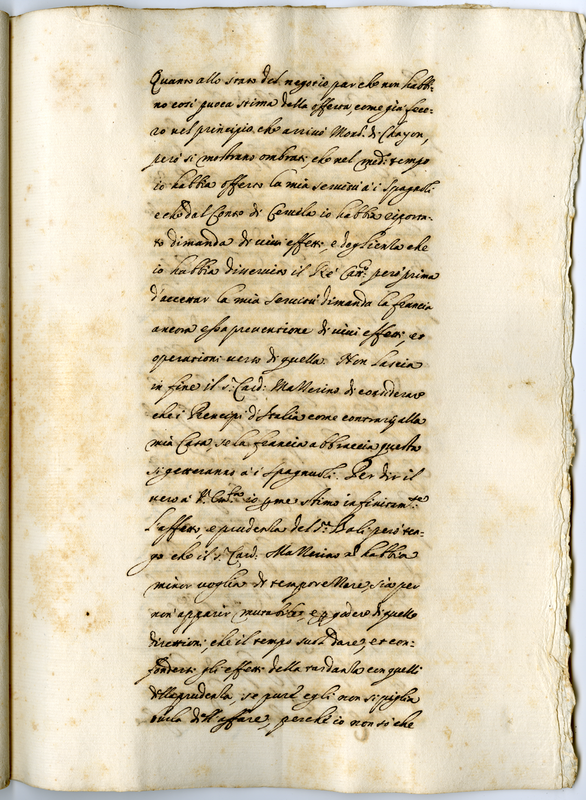 Quanto allo stato del negocio par che non habbi-
no così puoca stima della offerta, come già fece-
ro nel principio, che arrivò Mons. di Chayon,
però si mostrano ombrati che nel med. tempo
io habbia offerto la mia servitù à i Spagnoli
e che dal Conte di Cervela io habbia riporta-
to dimanda di vivi effetti, e doglienza che
io habbia disservito il Rè Catt. però prima
d'accettar la mia servitù dimanda la francia
ancora essa preventione di vivi effetti, et
operationi verso di quella. Non lascia
in fine il S. Card. Mazzerino di considerare
che i Prencipi d'Italia come contrarij alla
mia Casa, se la francia abbraccia questa
si getteranno à i Spagnuoli. Per dir il
vero à V. Em.za io per me stimo infinitam.te
l'affetto e prudenza del S.r Balì però ten-
go che il S. Card. Mazzerino habbia
minor voglia di temporezzare, sia per
non apparir mutabile, e per godere di quelle
direttioni, che il tempo suol dare, et con-
fondere gli effetti della tardanza con quelli
della prudenza, se pure egli non si piglia
burla dell'affare, perche io non sò che